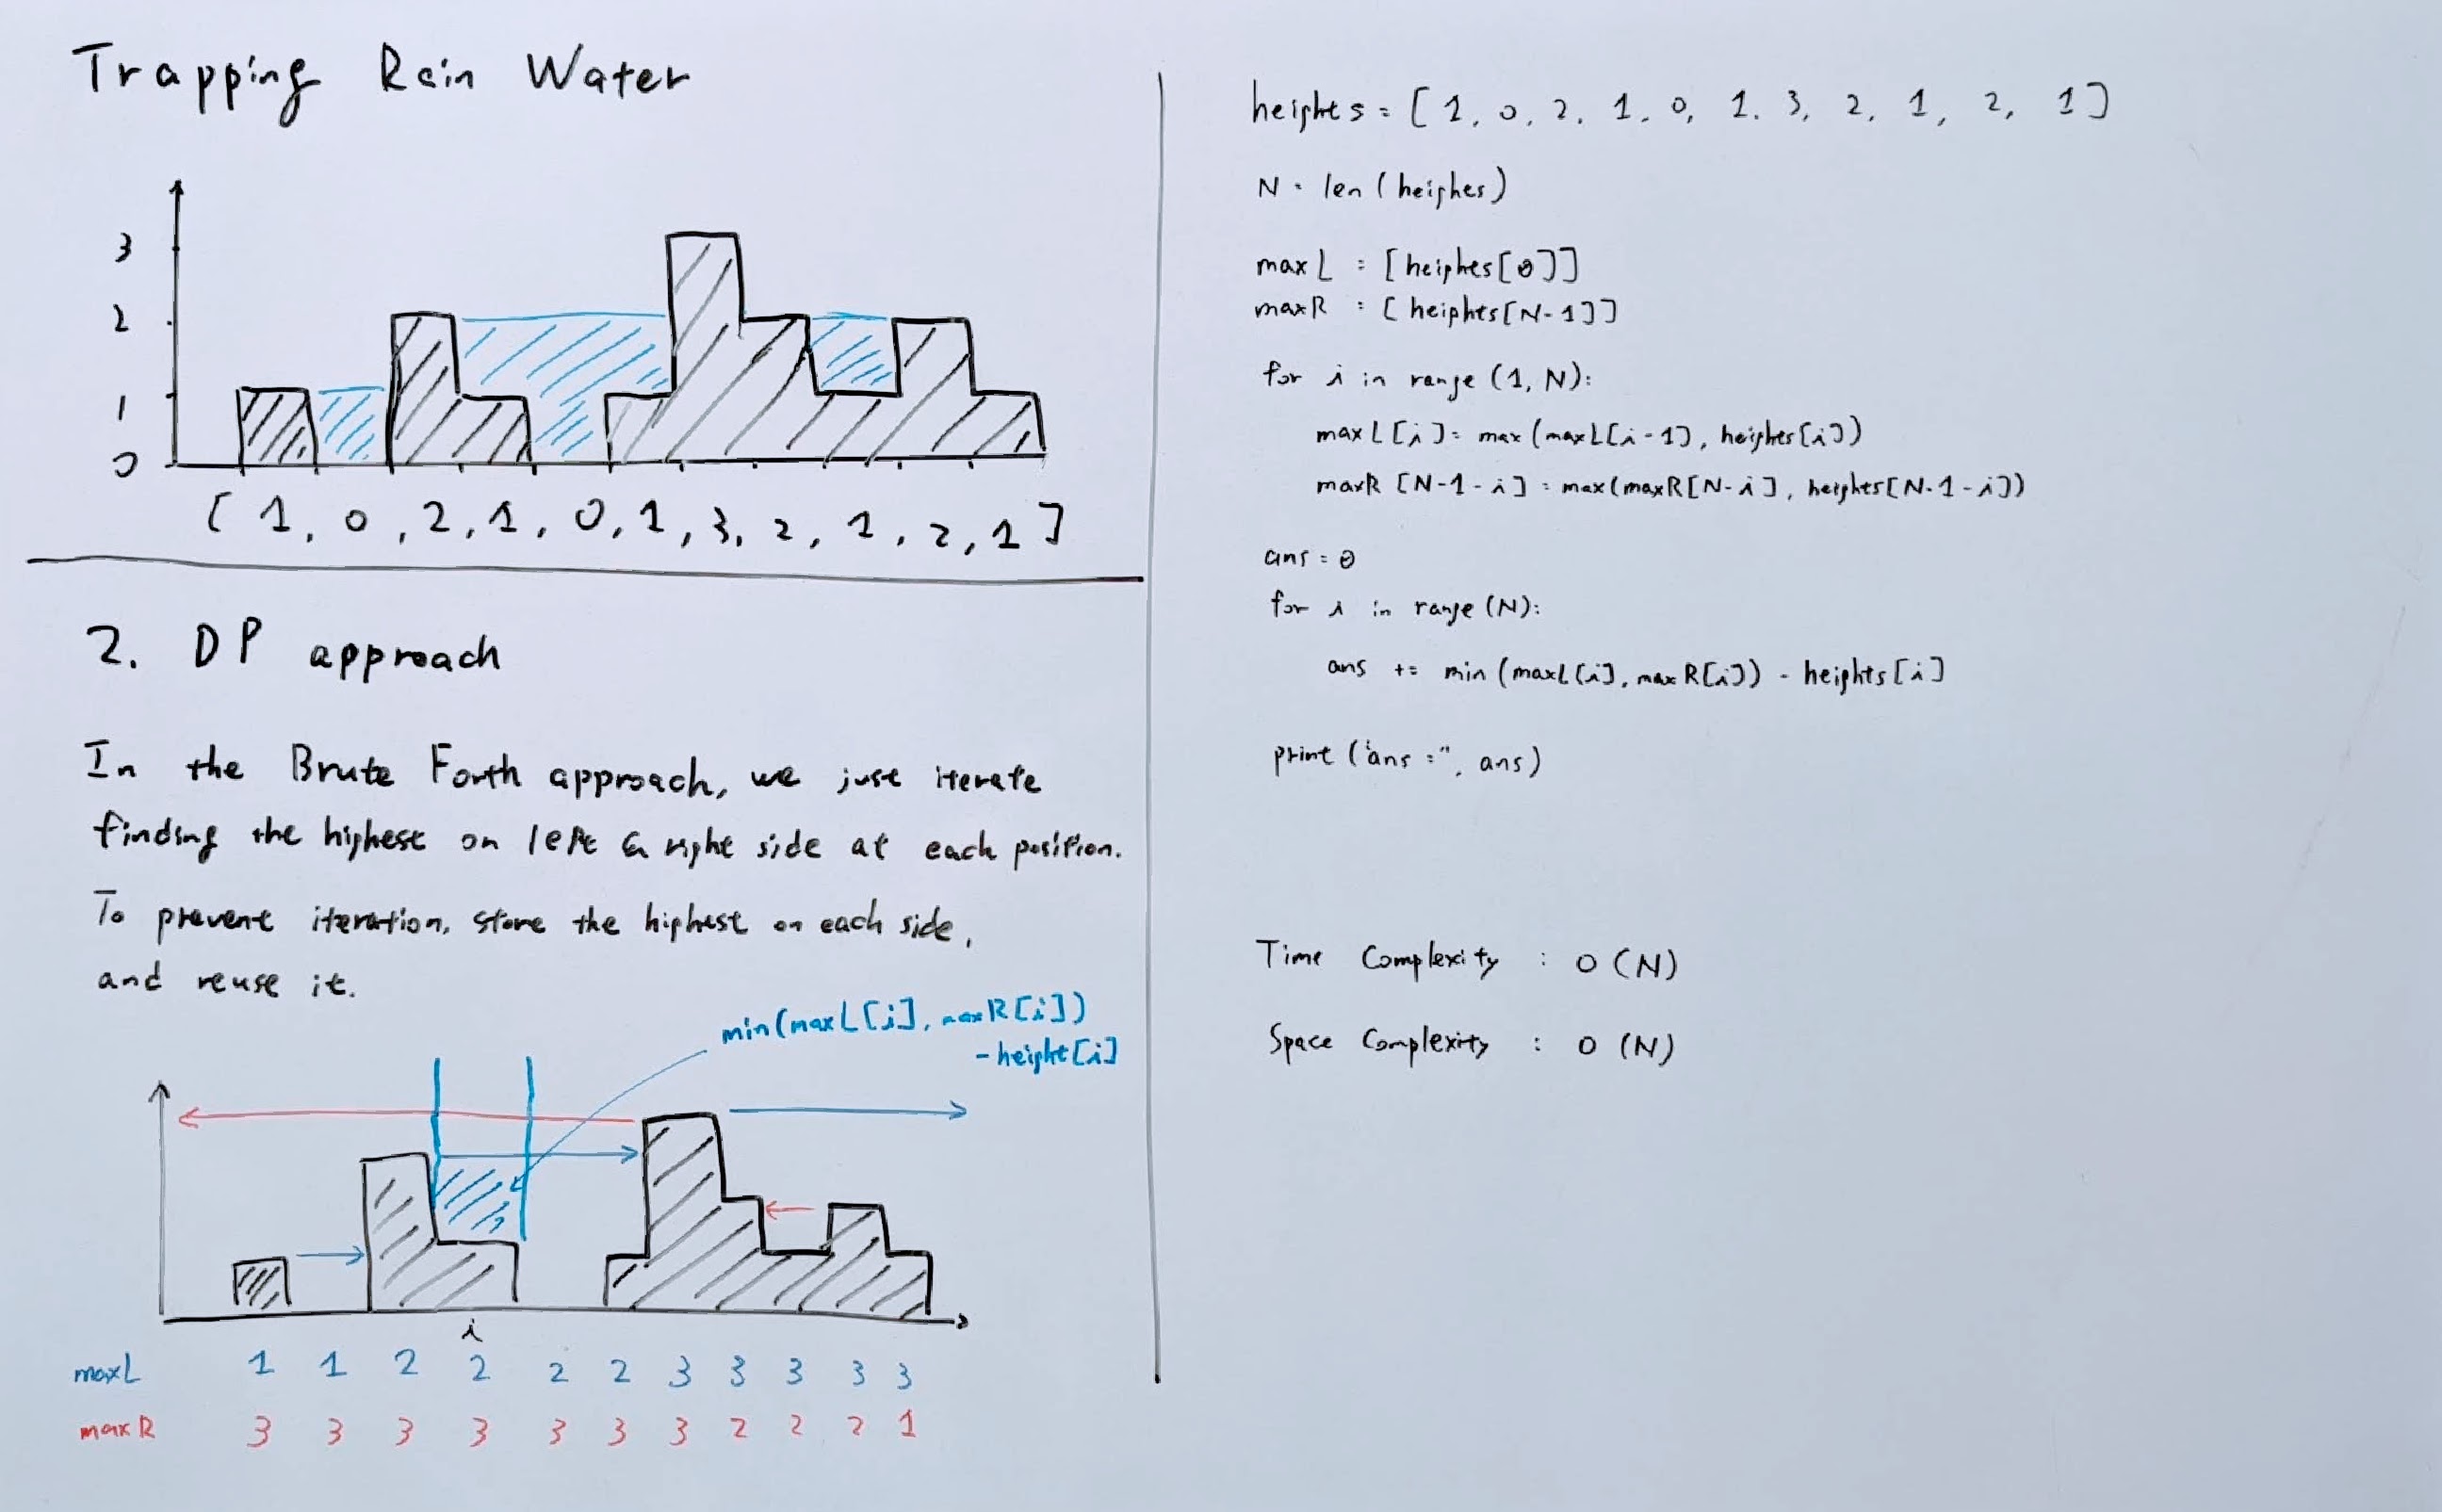 Trapping Rain Water
3
2
1
0
[ 1, 0, 2, 1, 0, 1, 3, 2, 1, 2, 1 ]
2. DP approach
In the Brute Forth approach, we just iterate
finding the highest on left & right side at each position.
To prevent iteration, store the highest on each side,
and reuse it.
min(maxL[i], maxR[i])
- height[i]
i
maxL 1 1 2 2 2 2 3 3 3 3 3
maxR 3 3 3 3 3 3 3 2 2 2 1
heights = [ 1, 0, 2, 1, 0, 1, 3, 2, 1, 2, 1 ]
N = len (heights)
maxL = [heights[0]]
maxR = [heights[N-1]]
for i in range (1, N):
maxL[i] = max (maxL[i-1], heights[i])
maxR [N-1-i] = max(maxR[N-i], heights[N-1-i])
ans = 0
for i in range (N):
ans += min (maxL[i], maxR[i]) - heights[i]
print ("ans =", ans)
Time Complexity : O (N)
Space Complexity : O (N)